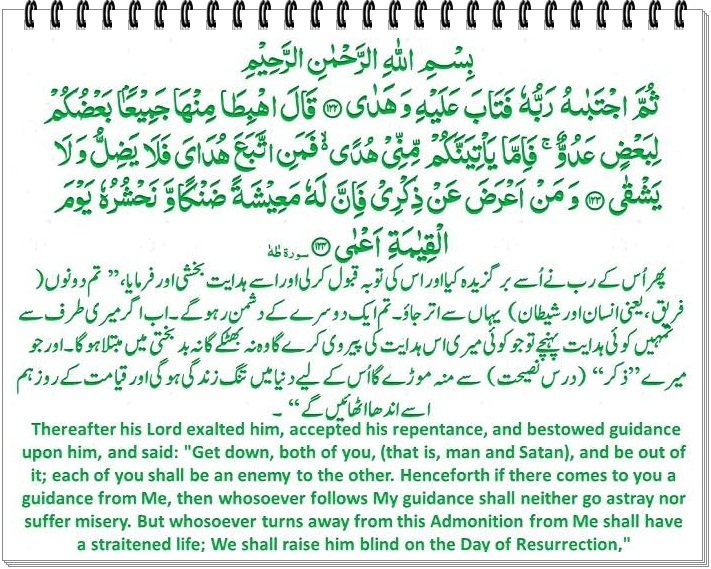 بِسْمِ اللهِ الرَّحْمٰنِ الرَّحِيْمِ
ثُمَّ اجْتَبٰىهُ رَبُّهٗ فَتَابَ عَلَيْهِ وَهَدٰى ﴿۱۲۲﴾ قَالَ اهْبِطَا مِنْهَا جَمِيْعًۢا بَعْضُكُمْ
لِبَعْضٍ عَدُوٌّ ۚ فَاِمَّا يَاْتِيَنَّكُمْ مِّنِّىْ هُدًى ۙ فَمَنِ اتَّبَعَ هُدَاىَ فَلَا يَضِلُّ وَلَا
يَشْقٰى ﴿۱۲۳﴾ وَمَنْ اَعْرَضَ عَنْ ذِكْرِىْ فَاِنَّ لَهٗ مَعِيْشَةً ضَنْكًا وَّ نَحْشُرُهٗ يَوْمَ
الْقِيٰمَةِ اَعْمٰى ﴿۱۲۴﴾ سورة طٰهٰ
پھر اُس کے رب نے اُسے برگزیدہ کیا اور اس کی توبہ قبول کر لی اور اسے ہدایت بخشی اور فرمایا، ”تم دونوں (
فریق، یعنی انسان اور شیطان) یہاں سے اتر جاؤ۔ تم ایک دوسرے کے دشمن رہو گے۔ اب اگر میری طرف سے
تمہیں کوئی ہدایت پہنچے تو جو کوئی میری اس ہدایت کی پیروی کرے گا وہ نہ بھٹکے گا نہ بدبختی میں مبتلا ہو گا۔ اور جو
میرے ”ذکر“ (درسِ نصیحت) سے منہ موڑے گا اُس کے لیے دنیا میں تنگ زندگی ہو گی اور قیامت کے روز ہم
اسے اندھا اٹھائیں گے“ ۔
Thereafter his Lord exalted him, accepted his repentance, and bestowed guidance
upon him, and said: "Get down, both of you, (that is, man and Satan), and be out of
it; each of you shall be an enemy to the other. Henceforth if there comes to you a
guidance from Me, then whosoever follows My guidance shall neither go astray nor
suffer misery. But whosoever turns away from this Admonition from Me shall have
a straitened life; We shall raise him blind on the Day of Resurrection,"